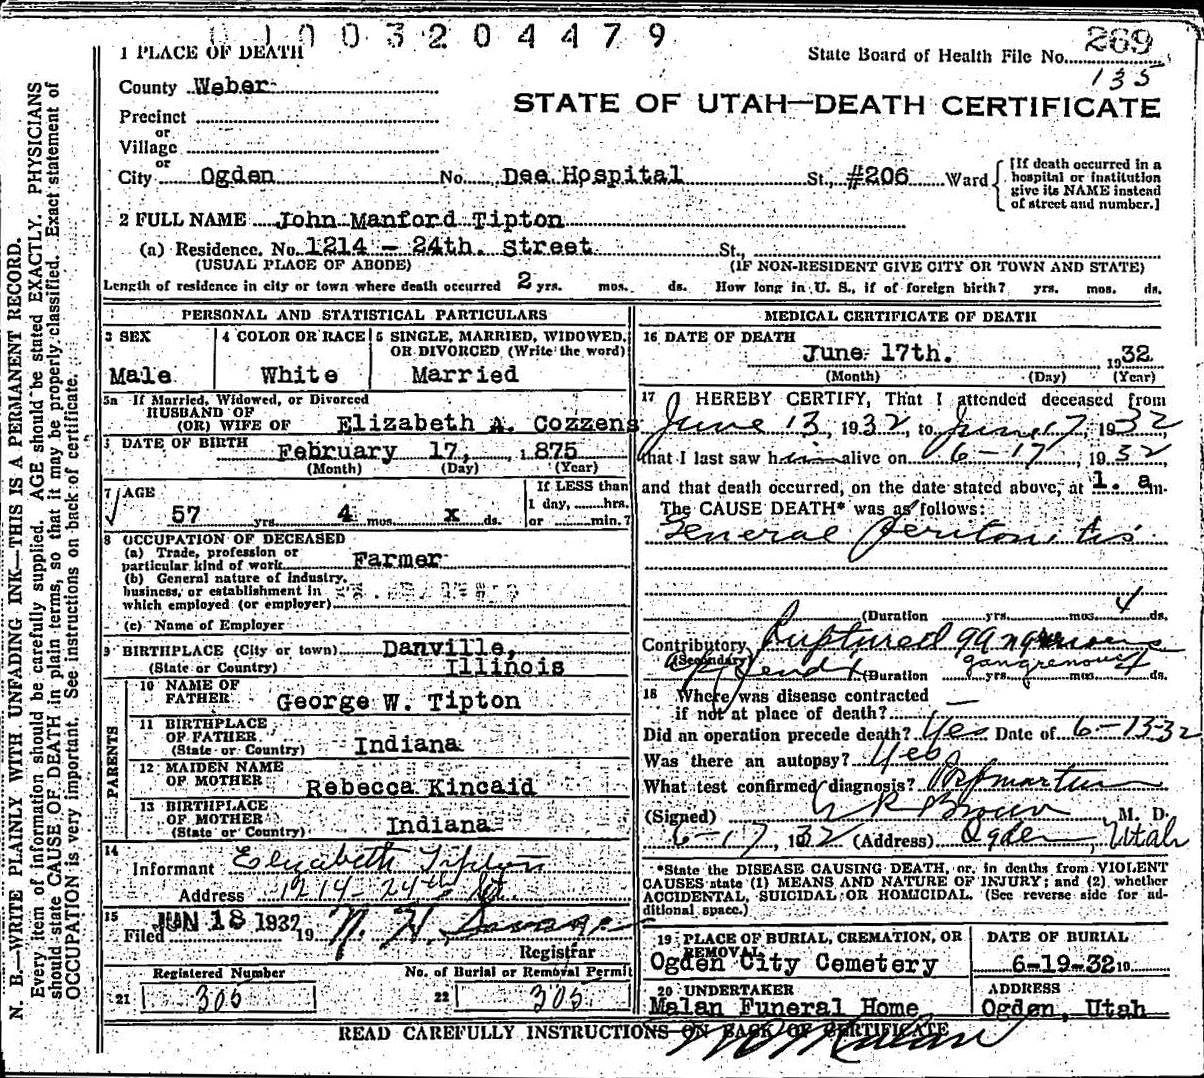 0 1 0 0 3 2 0 4 4 7 9
1 PLACE OF DEATH
State Board of Health File No. 269
135
County Weber
STATE OF UTAH—DEATH CERTIFICATE
Precinct
or
Village
or
City Ogden No. Dee Hospital St., #206 Ward
[If death occurred in a hospital or institution give its NAME instead of street and number.]
2 FULL NAME John Manford Tipton
(a) Residence. No. 1214 - 24th. Street St.,
(USUAL PLACE OF ABODE) (IF NON-RESIDENT GIVE CITY OR TOWN AND STATE)
Length of residence in city or town where death occurred 2 yrs. mos. ds. How long in U. S., if of foreign birth? yrs. mos. ds.
PERSONAL AND STATISTICAL PARTICULARS
3 SEX
Male
4 COLOR OR RACE
White
5 SINGLE, MARRIED, WIDOWED, OR DIVORCED (Write the word)
Married
5a If Married, Widowed, or Divorced
HUSBAND OF
(OR) WIFE OF Elizabeth A. Cozzens
DATE OF BIRTH
February 17, 1875
(Month) (Day) (Year)
7 AGE
57 yrs. 4 mos. x ds.
If LESS than
1 day, hrs.
or min.?
8 OCCUPATION OF DECEASED
(a) Trade, profession or
particular kind of work Farmer
(b) General nature of industry,
business, or establishment in
which employed (or employer)
(c) Name of Employer
9 BIRTHPLACE (City or town) Danville,
(State or Country) Illinois
PARENTS
10 NAME OF
FATHER George W. Tipton
11 BIRTHPLACE
OF FATHER
(State or Country) Indiana
12 MAIDEN NAME
OF MOTHER Rebecca Kincaid
13 BIRTHPLACE
OF MOTHER
(State or Country) Indiana
14
Informant Elizabeth Tipton
Address 1214 - 24th St.
15
Filed JUN 18 1932 19 N. H. Savage
Registrar
Registered Number
21 305
No. of Burial or Removal Permit
22 305
MEDICAL CERTIFICATE OF DEATH
16 DATE OF DEATH
June 17th. 1932
(Month) (Day) (Year)
17 I HEREBY CERTIFY, That I attended deceased from
June 13, 1932, to June 17, 1932
that I last saw him alive on 6-17, 1932,
and that death occurred, on the date stated above, at 1. a m.
The CAUSE DEATH* was as follows:
General peritonitis
(Duration yrs. mos. 4 ds.
Contributory Ruptured gangrenous
(Secondary) gangrenous
(Duration yrs. mos. 4 ds.
18 Where was disease contracted
if not at place of death? —
Did an operation precede death? Yes Date of 6-13-32
Was there an autopsy? Yes
What test confirmed diagnosis?
(Signed) R Brown M. D.
6-17, 1932 (Address) Ogden, Utah
*State the DISEASE CAUSING DEATH, or, in deaths from VIOLENT
CAUSES state (1) MEANS AND NATURE OF INJURY; and (2) whether
ACCIDENTAL, SUICIDAL OR HOMICIDAL. (See reverse side for ad-
ditional space.)
19 PLACE OF BURIAL, CREMATION, OR
REMOVAL
Ogden City Cemetery
DATE OF BURIAL
6-19-32 19
20 UNDERTAKER
Malan Funeral Home
ADDRESS
Ogden, Utah
READ CAREFULLY INSTRUCTIONS ON BACK OF CERTIFICATE
N. B.—WRITE PLAINLY WITH UNFADING INK—THIS IS A PERMANENT RECORD.
Every item of information should be carefully supplied. AGE should be stated EXACTLY. PHYSICIANS
should state CAUSE OF DEATH in plain terms, so that it may be properly classified. Exact statement of
OCCUPATION is very important. See instructions on back of certificate.